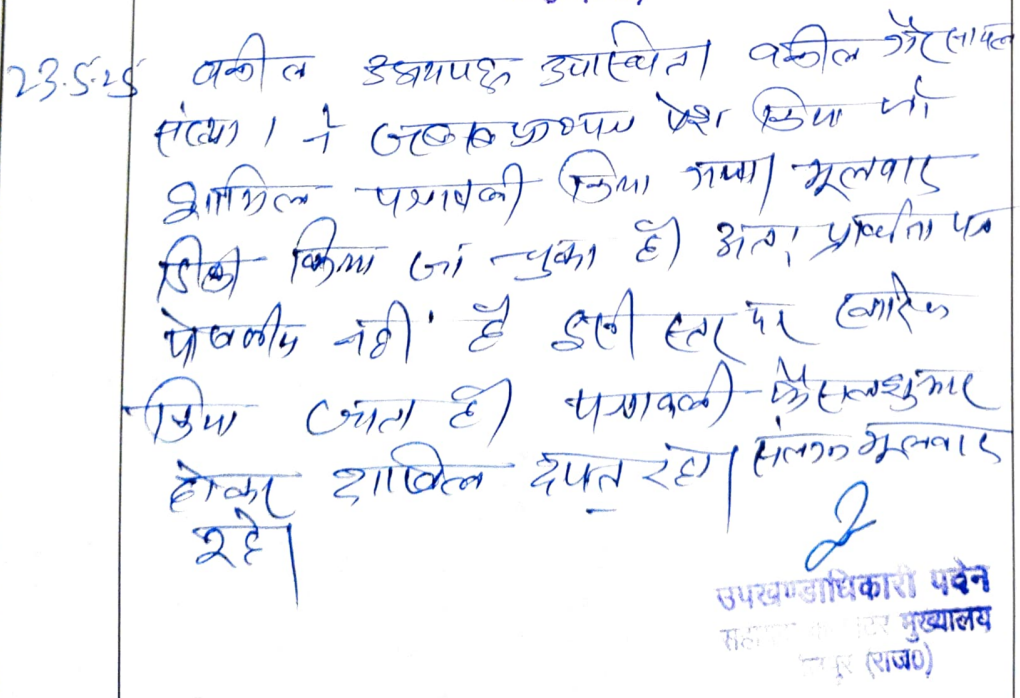 23.5.25 वकील उभयपक्ष उपस्थित। वकील गैरसायल
संख्या 1 ने जवाब प्रार्थना पत्र पेश किया जो
शामिल पत्रावली किया गया। मूलवाद
डिक्री किया जा चुका है। अतः प्रार्थना पत्र
पोषणीय नहीं है इसी स्तर पर खारिज
किया जाता है। पत्रावली फैसलशुमार
होकर दाखिल दफ्तर रहे। संलग्न मूलवाद
रहे।
उपखण्डाधिकारी पदेन
मुख्यालय
(राज0)